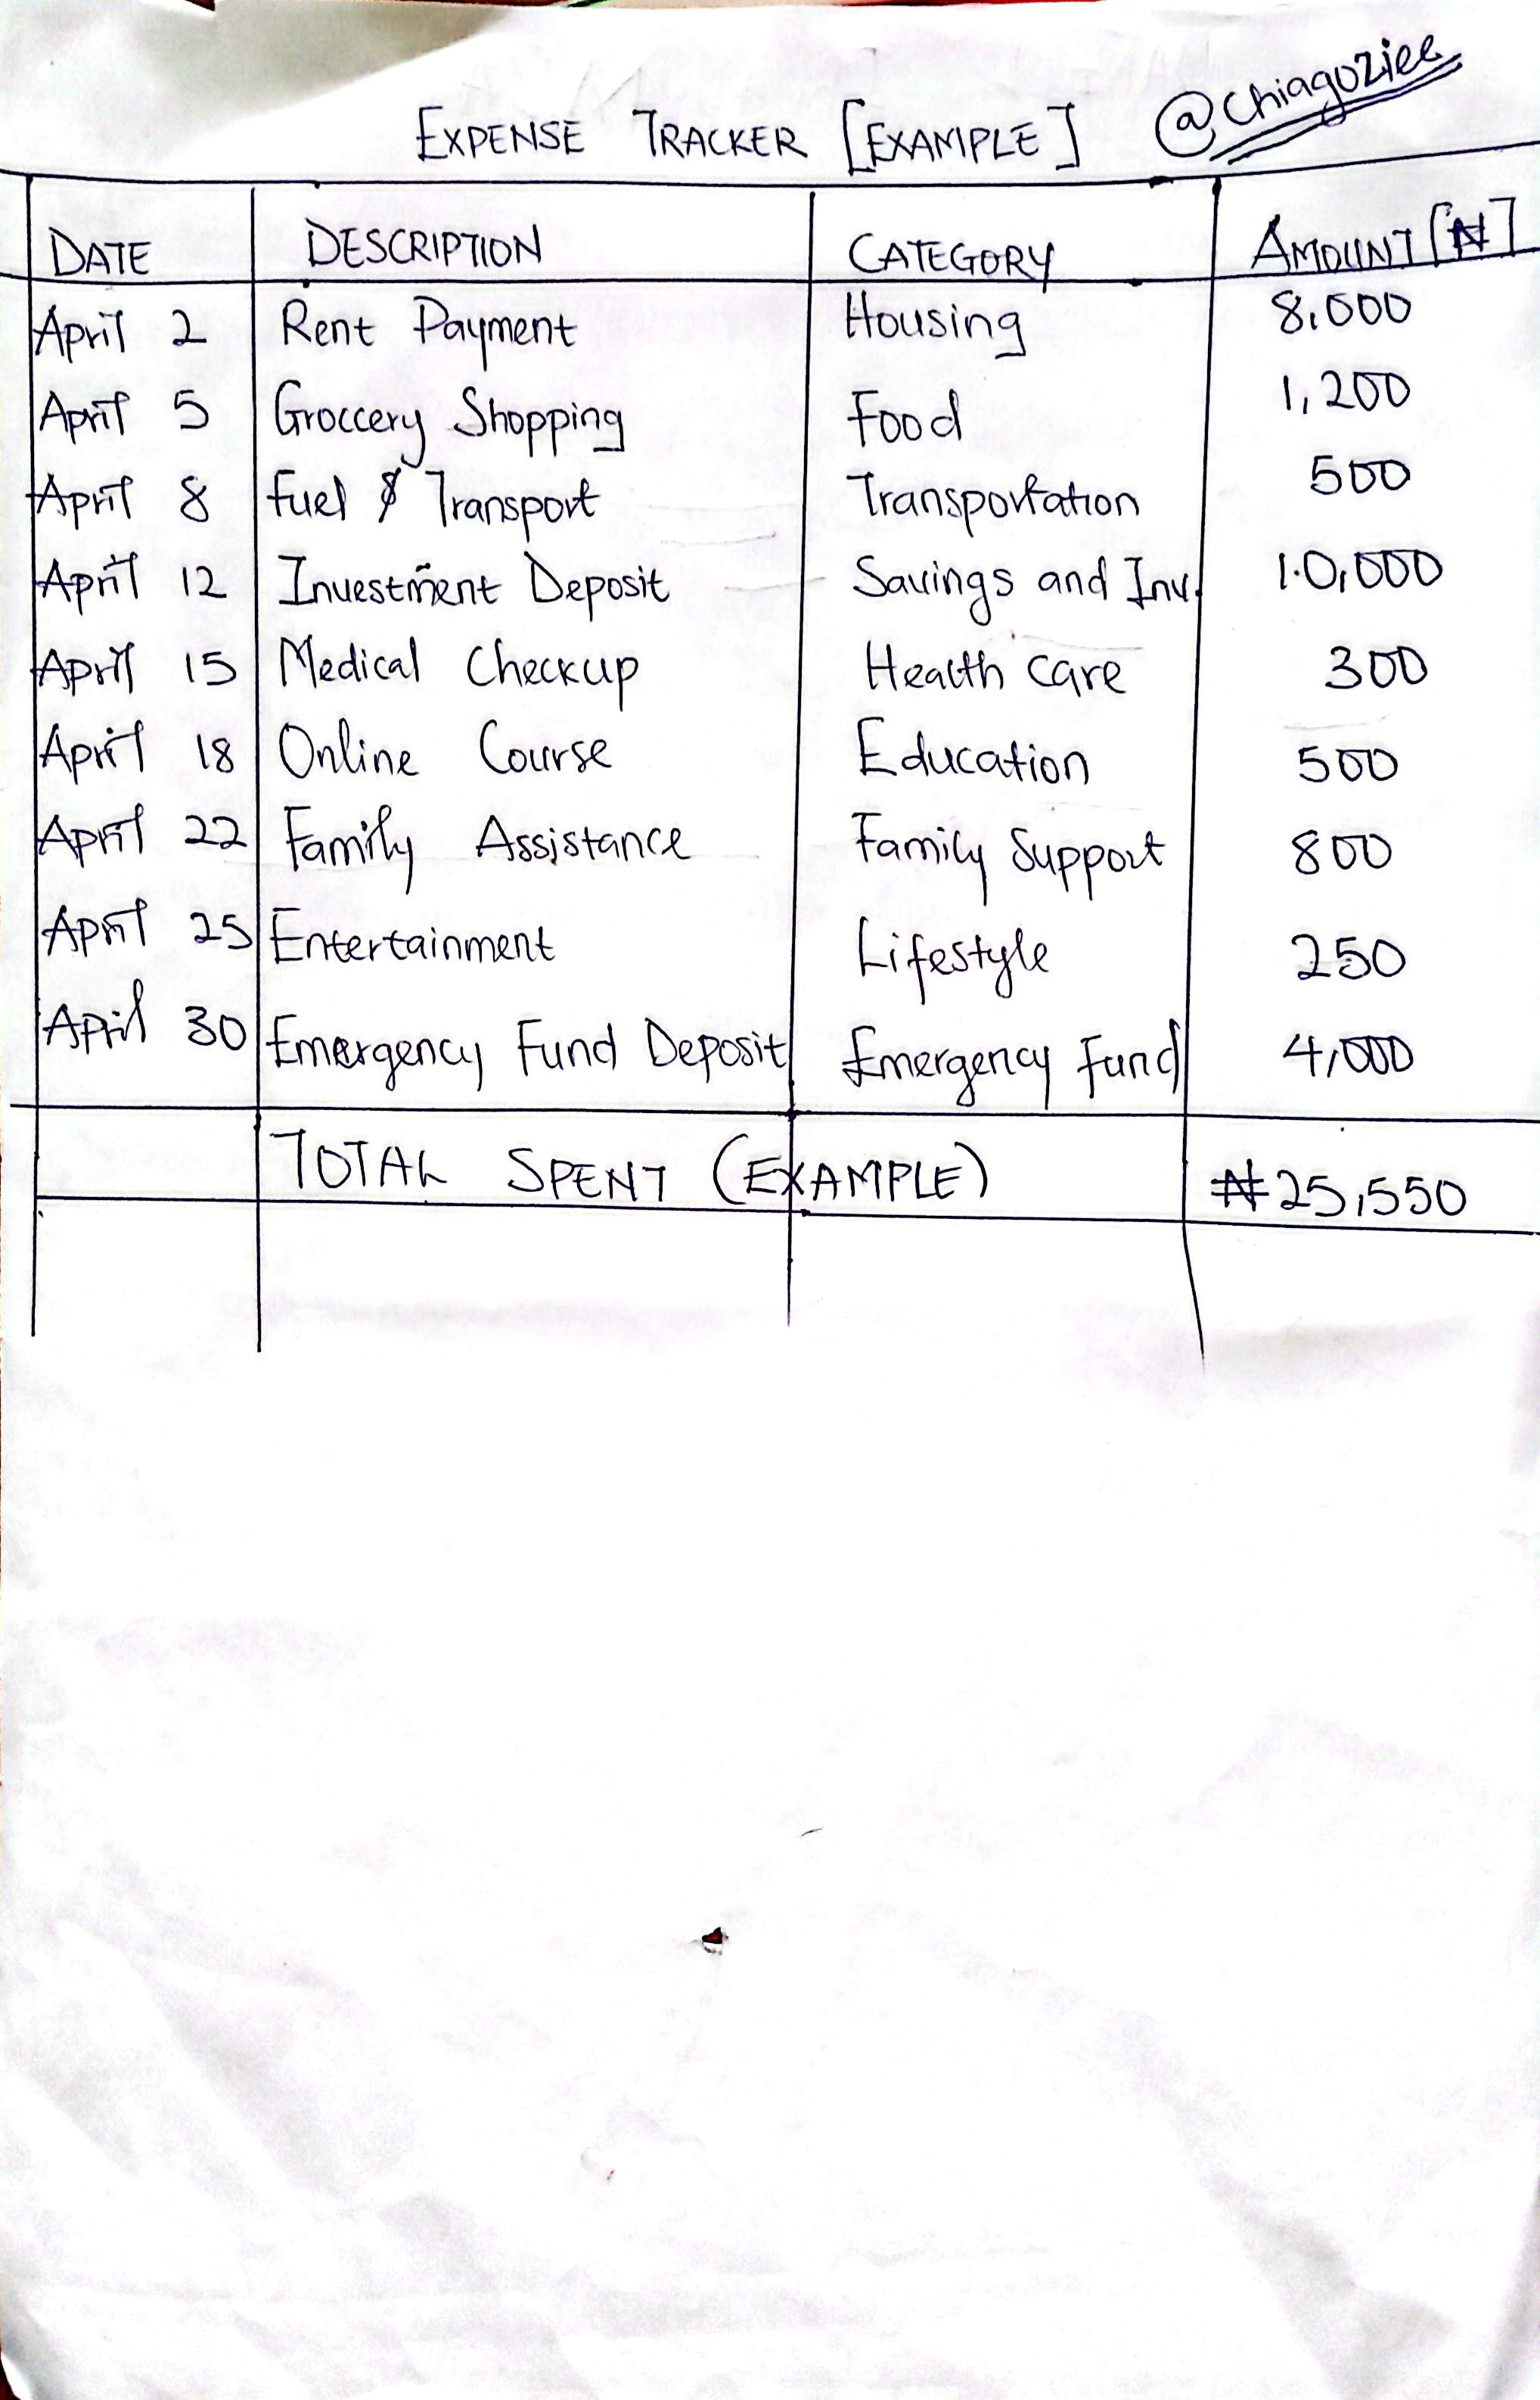 EXPENSE TRACKER [EXAMPLE] @Chiagoziee
DATE DESCRIPTION CATEGORY AMOUNT [₦]
April 2 Rent Payment Housing 8,000
April 5 Groccery Shopping Food 1,200
April 8 Fuel & Transport Transportation 500
April 12 Investment Deposit Savings and Inv. 10,000
April 15 Medical Checkup Health care 300
April 18 Online Course Education 500
April 22 Family Assistance Family Support 800
April 25 Entertainment Lifestyle 250
April 30 Emergency Fund Deposit Emergency Fund 4,000
TOTAL SPENT (EXAMPLE) ₦25,550